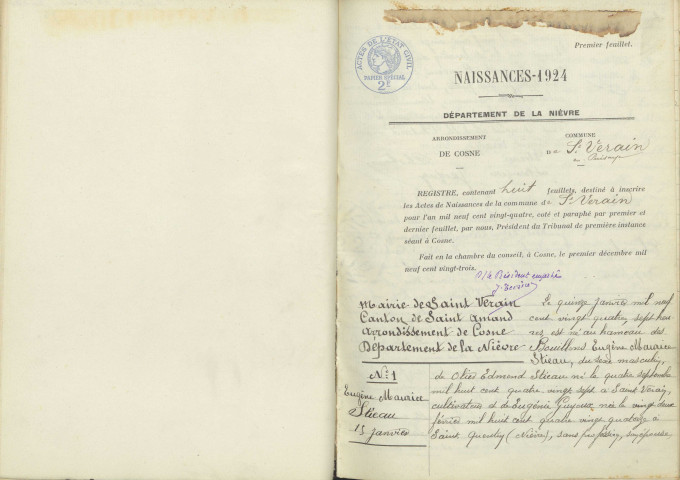 Premier feuillet.
ACTES DE L'ÉTAT CIVIL
PAPIER SPÉCIAL
2F
NAISSANCES-1924
DÉPARTEMENT DE LA NIÈVRE
ARRONDISSEMENT
DE COSNE
COMMUNE
De St Verain
REGISTRE, contenant huit feuillets, destiné à inscrire
les Actes de Naissances de la commune de St Verain
pour l'an mil neuf cent vingt-quatre, coté et paraphé par premier et
dernier feuillet, par nous, Président du Tribunal de première instance
séant à Cosne.
Fait en la chambre du conseil, à Cosne, le premier décembre mil
neuf cent vingt-trois.
P/ le Président empêché
Mairie de Saint Verain
Canton de Saint Amand
Arrondissement de Cosne
Département de la Nièvre
No 1
Eugène Maurice
Stieau
15 janvier
Le quinze janvier mil neuf
cent vingt quatre, sept heu-
res est né au hameau des
Bouillons Eugène Maurice
Stieau, du sexe masculin,
de Edmond Stieau né le quatre septembre
mil huit cent quatre vingt sept à Saint Verain,
cultivateur et de Eugénie née le vingt deux
février mil huit cent quatre vingt quatorze à
Saint Quentin (Nièvre), sans profession, son épouse,